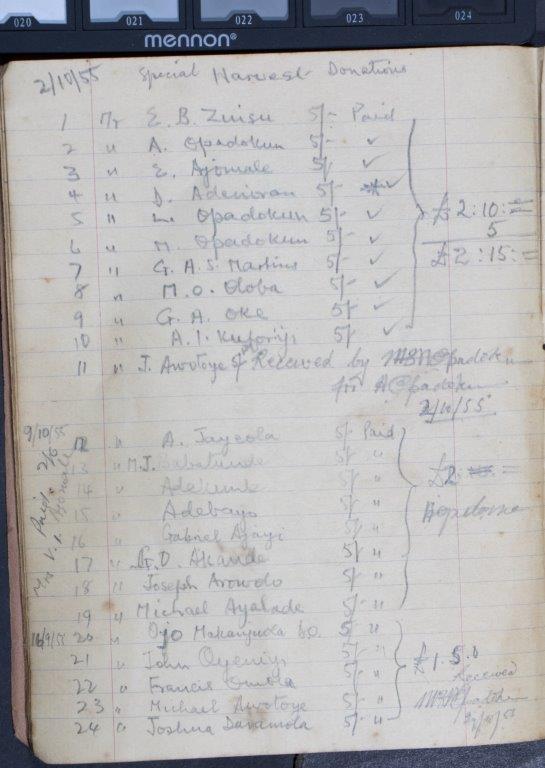 020 021 022 023 024
mennon®
2/10/55 Special Harvest Donations
1 Mr E. B. Zinsu 5/- Paid
2 " A. Opadokun 5/- ✓
3 " E. Ajomale 5/- ✓
4 " D. Adeniran 5/- ✓
5 " Opadokun 5/- ✓
6 " M. Opadokun 5/- ✓
7 " G. A. S. Martins 5/- ✓
8 " M. O. Oloba 5/- ✓
9 " G. A. Oke 5/- ✓
10 " A. I. Kuforiji 5/- ✓
£2:10:=
5
£2:15:=
11 " J. Awotoye 5/- Received by Opadokun
for A Opadokun
2/10/55
9/10/55
12 " A. Jayeola 5/- Paid
13 " M. J. Babatunde 5/- "
14 " Adekunle 5/- "
15 " Adebayo 5/- "
16 " Gabriel Ajayi 5/- "
17 " D. Akande 5/- "
18 " Joseph Arowolo 5/- "
19 " Michael Ayalade 5/- "
£2 : =
20 " Ojo 5/- "
21 " John Oyeniyi 5/- "
22 " Francis 5/- "
23 " Michael Awotoye 5/- "
24 " Joshua Daramola 5/- "
£1.5.0
Received